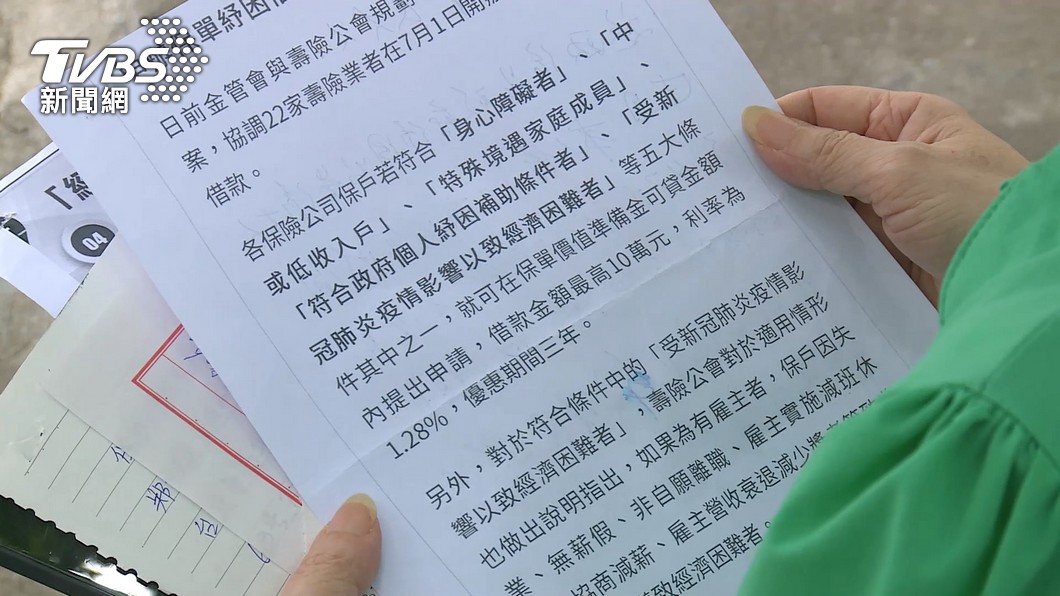 TVBS
新聞網
單紓困
日前金管會與壽險公會規劃
案，協調22家壽險業者在7月1日開辦
借款。
各保險公司保戶若符合「身心障礙者」、「中
或低收入戶」、「特殊境遇家庭成員」、
「符合政府個人紓困補助條件者」、「受新
冠肺炎疫情影響以致經濟困難者」等五大條
件其中之一，就可在保單價值準備金可貸金額
內提出申請，借款金額最高10萬元，利率為
1.28%，優惠期間三年。
另外，對於符合條件中的「受新冠肺炎疫情影
響以致經濟困難者」，壽險公會對於適用情形
也做出說明指出，如果為有雇主者，保戶因失
業、無薪假、非自願離職、雇主實施減班休
協商減薪、雇主營收衰退減少將
致經濟困難者。
「經
04